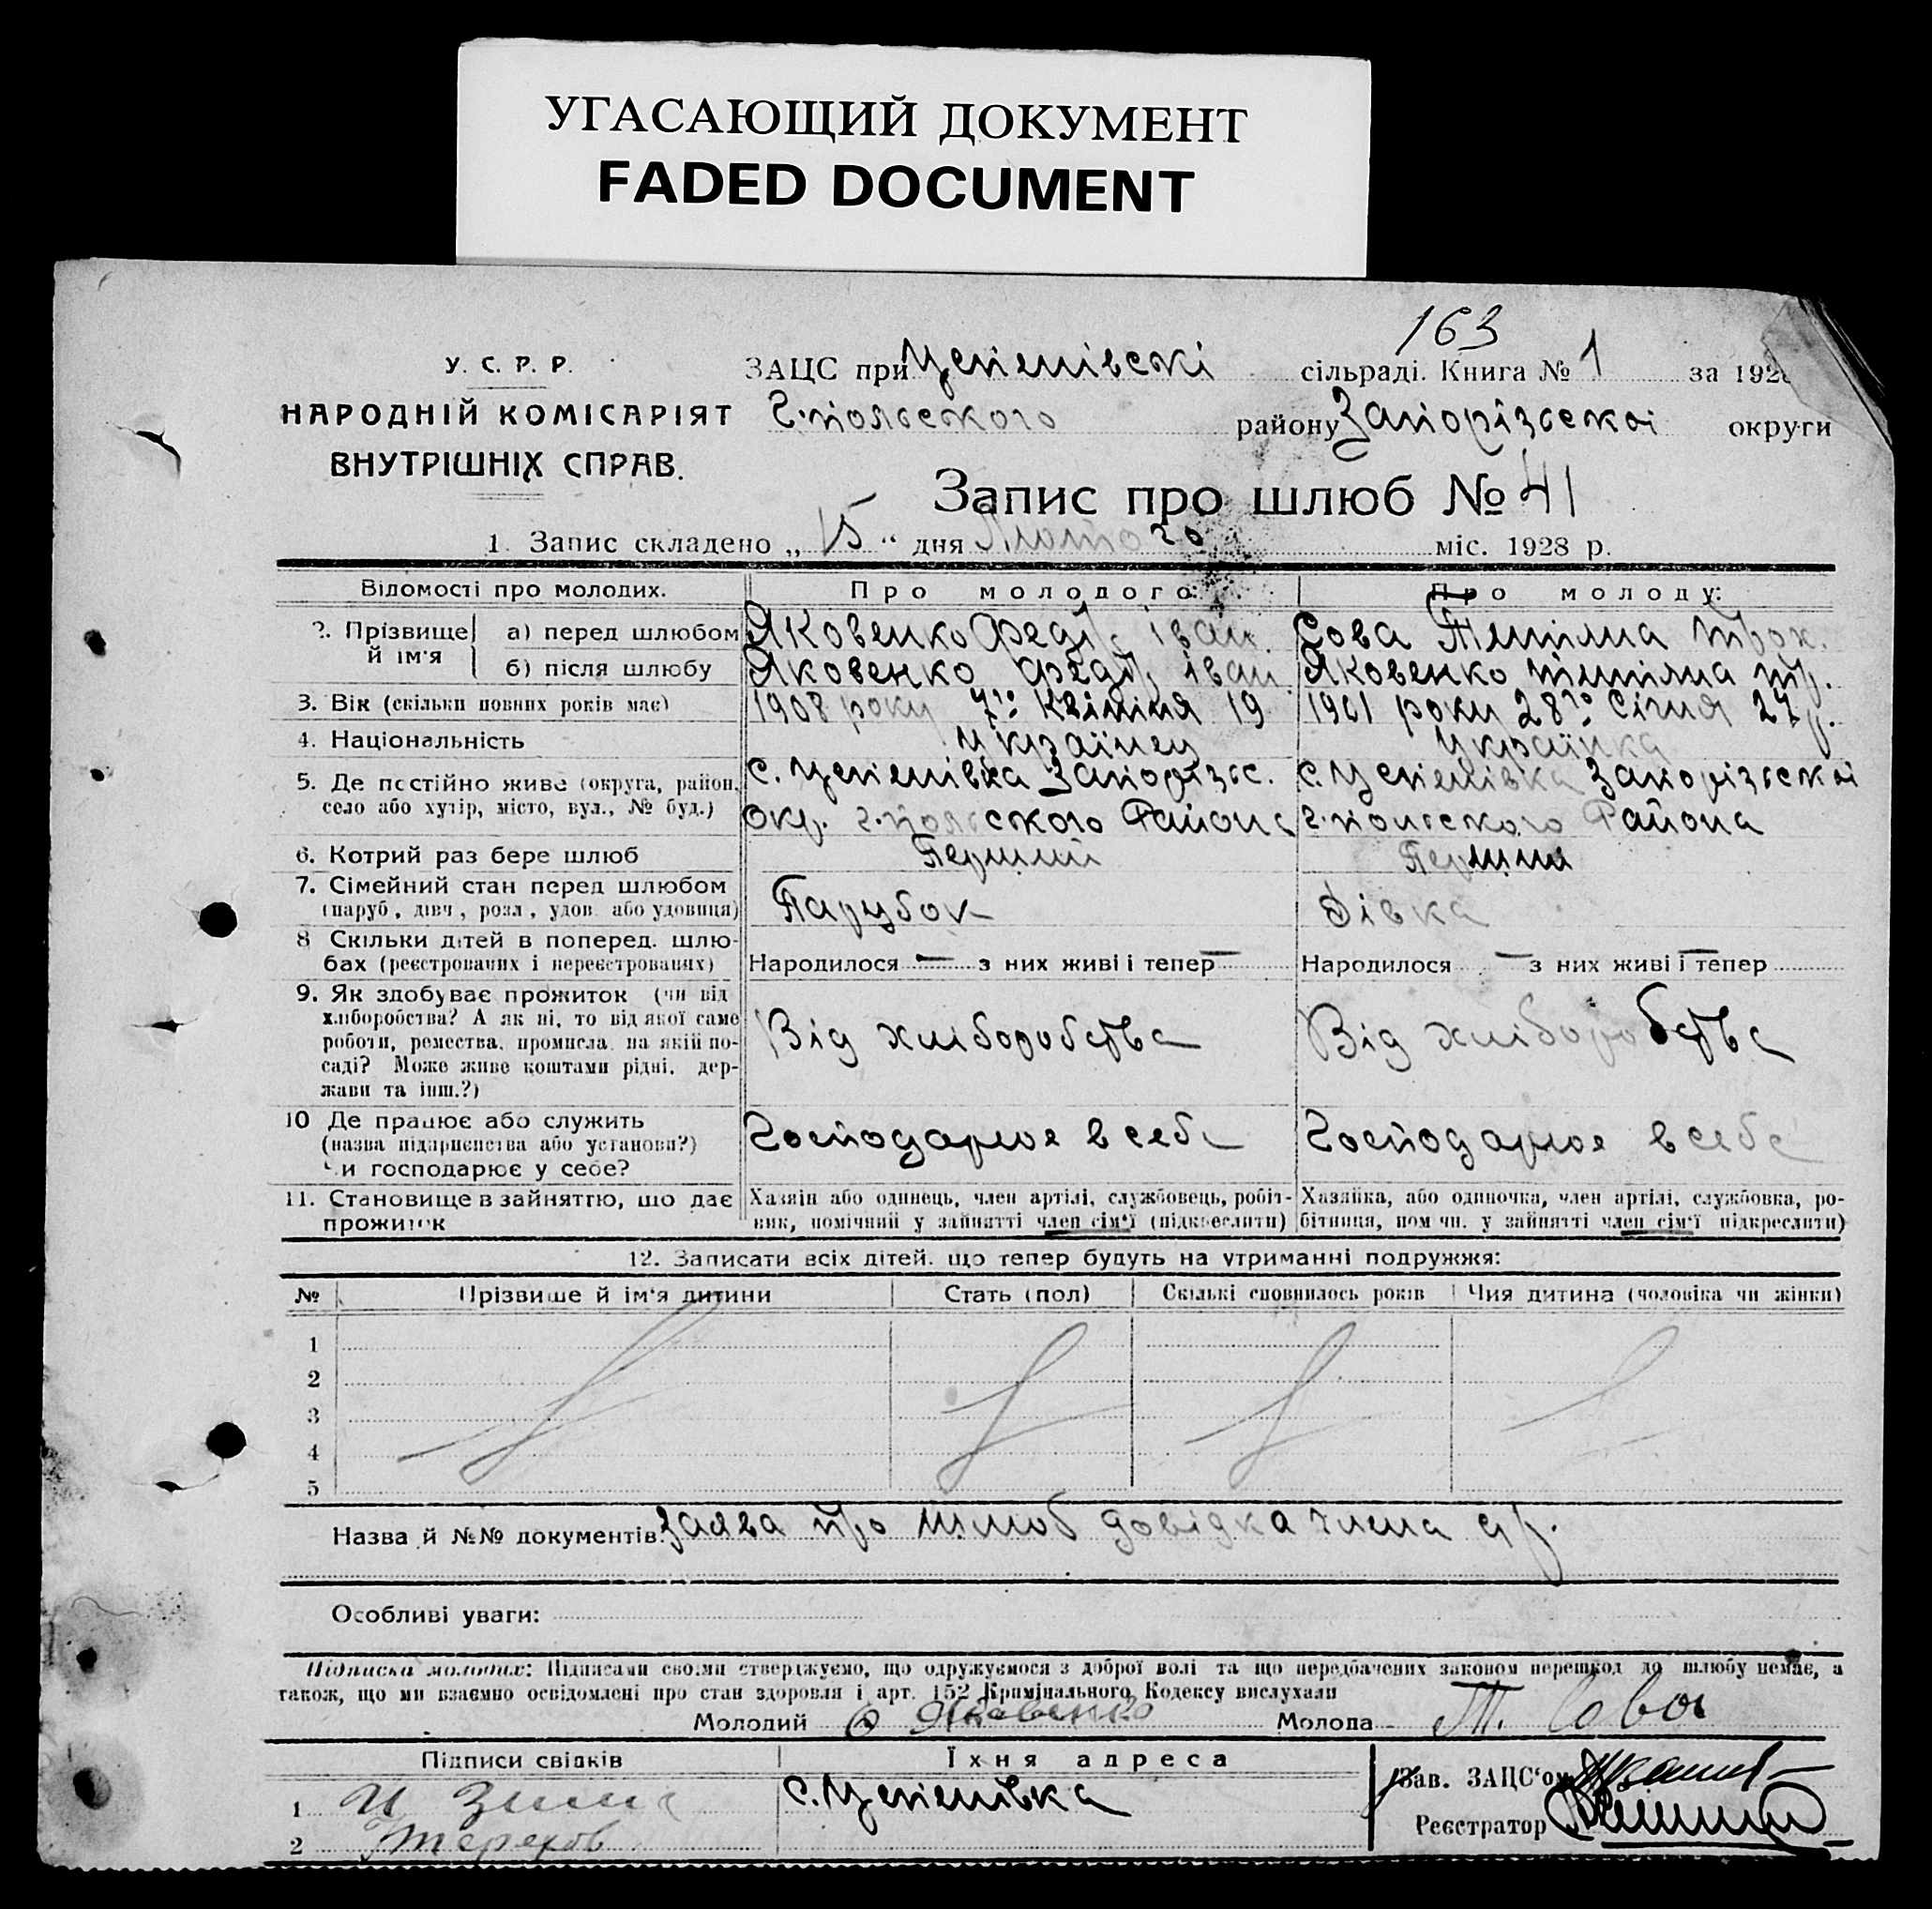 УГАСАЮЩИЙ ДОКУМЕНТ
FADED DOCUMENT
163
У. С. Р. Р.
НАРОДНІЙ КОМІСАРІЯТ
ВНУТРІШНІХ СПРАВ.
ЗАЦС при Цепенівскі сільраді. Книга № 1 за 192
Г.польського району Запорізької округи
Запис про шлюб № 41
1. Запис складено „ 15 “ дня Лютого міс. 1928 р.
Відомості про молодих.
Про молодого:
Про молоду:
2. Прізвище й ім'я
а) перед шлюбом
Яковенко Федір Іван.
Сова Тетіяна Трох.
б) після шлюбу
Яковенко Федір Іван
Яковенко Тетіяна Тр.
3. Вік (скільки повних років має)
1908 року 7го Квітня 19
1901 року 28го Січня 27 р.
4. Національність
Українец
Українка
5. Де постійно живе (округа, район, село або хутір, місто, вул., № буд.)
с. Цепенівка Запорізьс. Окр. Г.польського Района
с. Цепенівка Запорізької Г.польського Района
6. Котрий раз бере шлюб
Перший
Перший
7. Сімейний стан перед шлюбом (паруб., дівч., розл., удов. або удовиця)
Парубок
Дівка
8 Скільки дітей в поперед. шлюбах (реєстрованих і нереєстрованих)
Народилося — з них живі і тепер —
Народилося — з них живі і тепер —
9. Як здобуває прожиток (чи від хліборобства? А як ні, то від якої саме роботи, ремества, промисла, на якій посаді? Може живе коштами рідні, держави та інш.?)
Від хліборобства
Від хліборобства
10 Де працює або служить (назва підприємства або установи?) Чи господарює у себе?
Господарює в себе
Господарює в себе
11. Становище в зайняттю, що дає прожиток
Хазяїн або одинець, член артілі, службовець, робітник, помічний у зайнятті член сім'ї (підкреслити)
Хазяйка, або одиночка, член артілі, службовка, робітниця, помічн. у зайнятті член сім'ї підкреслити)
12. Записати всіх дітей, що тепер будуть на утриманні подружжя:
№ Прізвище й ім'я дитини Стать (пол) Скількі сповнилось років Чия дитина (чоловіка чи жінки)
1
2
3
4
5
Назва й №№ документів: Заява про шлюб довідка
Особливі уваги:
Підписка молодих: Підписами своїми стверджуємо, що одружуємося з доброї волі та що передбачених законом перешкод до шлюбу немає, а
також, що ми взаємно освідомлені про стан здоровля і арт. 152 Кримінального Кодексу вислухали
Молодий Ф Яковенко Молода Т. Сова
Підписи свідків Їхня адреса
Зав. ЗАЦС'ом
1 И Зима с. Цепенівка
Реєстратор
2 Терехов